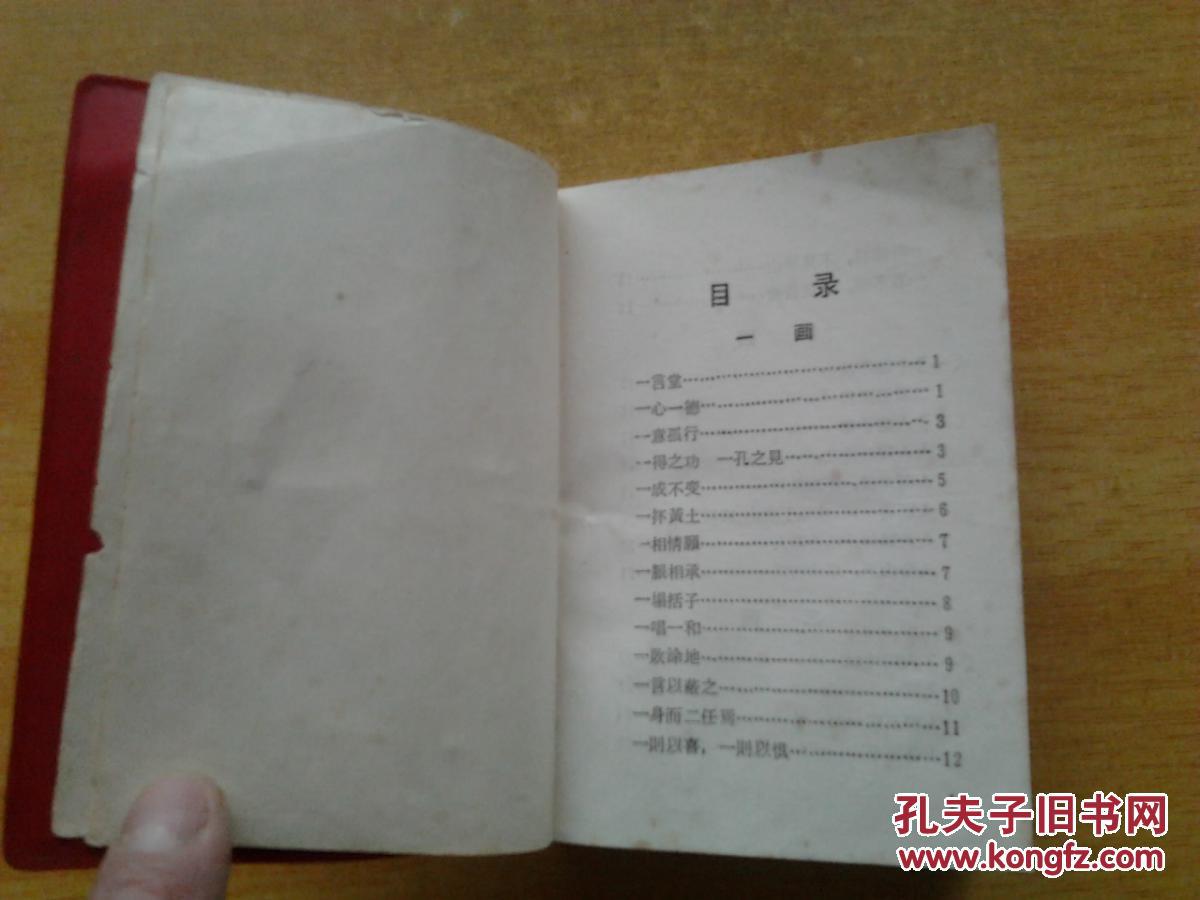 目 录
一 画
一言堂……………………1
一心一德……………………1
一意孤行……………………3
一得之功 一孔之見……………………3
一成不变……………………5
一抔黃土……………………6
一相情願……………………7
一脈相承……………………7
一揽括子……………………8
一唱一和……………………9
一敗涂地……………………9
一言以蔽之……………………10
一身而二任焉……………………11
一則以喜，一則以惧……………………12
孔夫子旧书网
www.kongfz.com